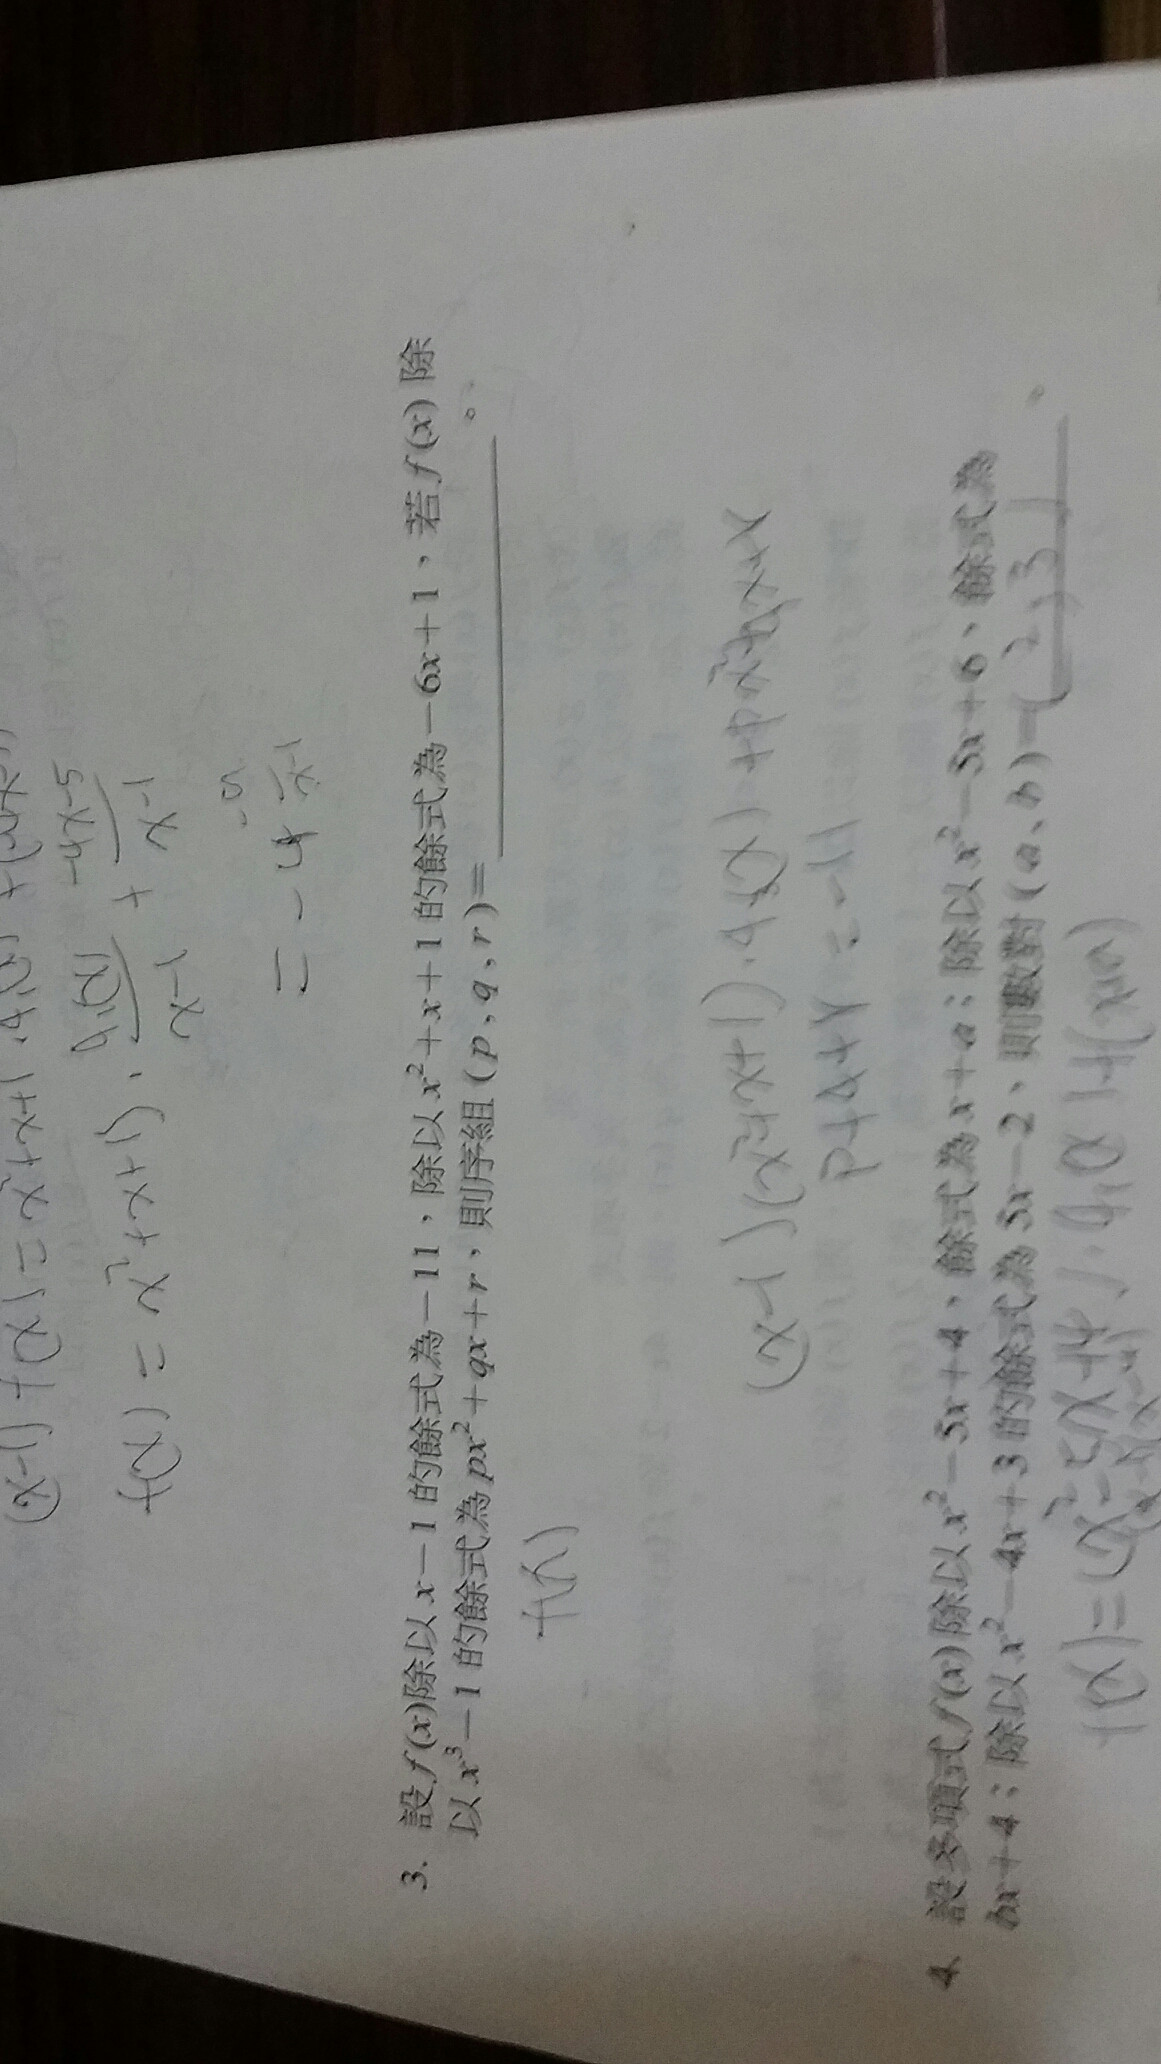 (x-1) f(x) = x²+x+1
f(x) = (x²+x+1) · + -4x-5 x-1
= -4
3. 設 f(x)除以 x-1 的餘式為-11,除以 x²+x+1 的餘式為-6x+1,若 f(x) 除
以 x³-1 的餘式為 px²+qx+r,則序組(p,q,r)=____。
f(x)
(x-1)(x²+x+1)·q(x)+px²+qx+r
p+q+r=-11
4. 設多項式 f(x)除以 x²-5x+4,餘式為 x+a;除以 x²-5x+6,餘式為
bx+4;除以 x²-4x+3 的餘式為 5x-2,則數對(a,b)=(2,3)。
f(x)=(x²-5x+4)·q(x)+(x+a)